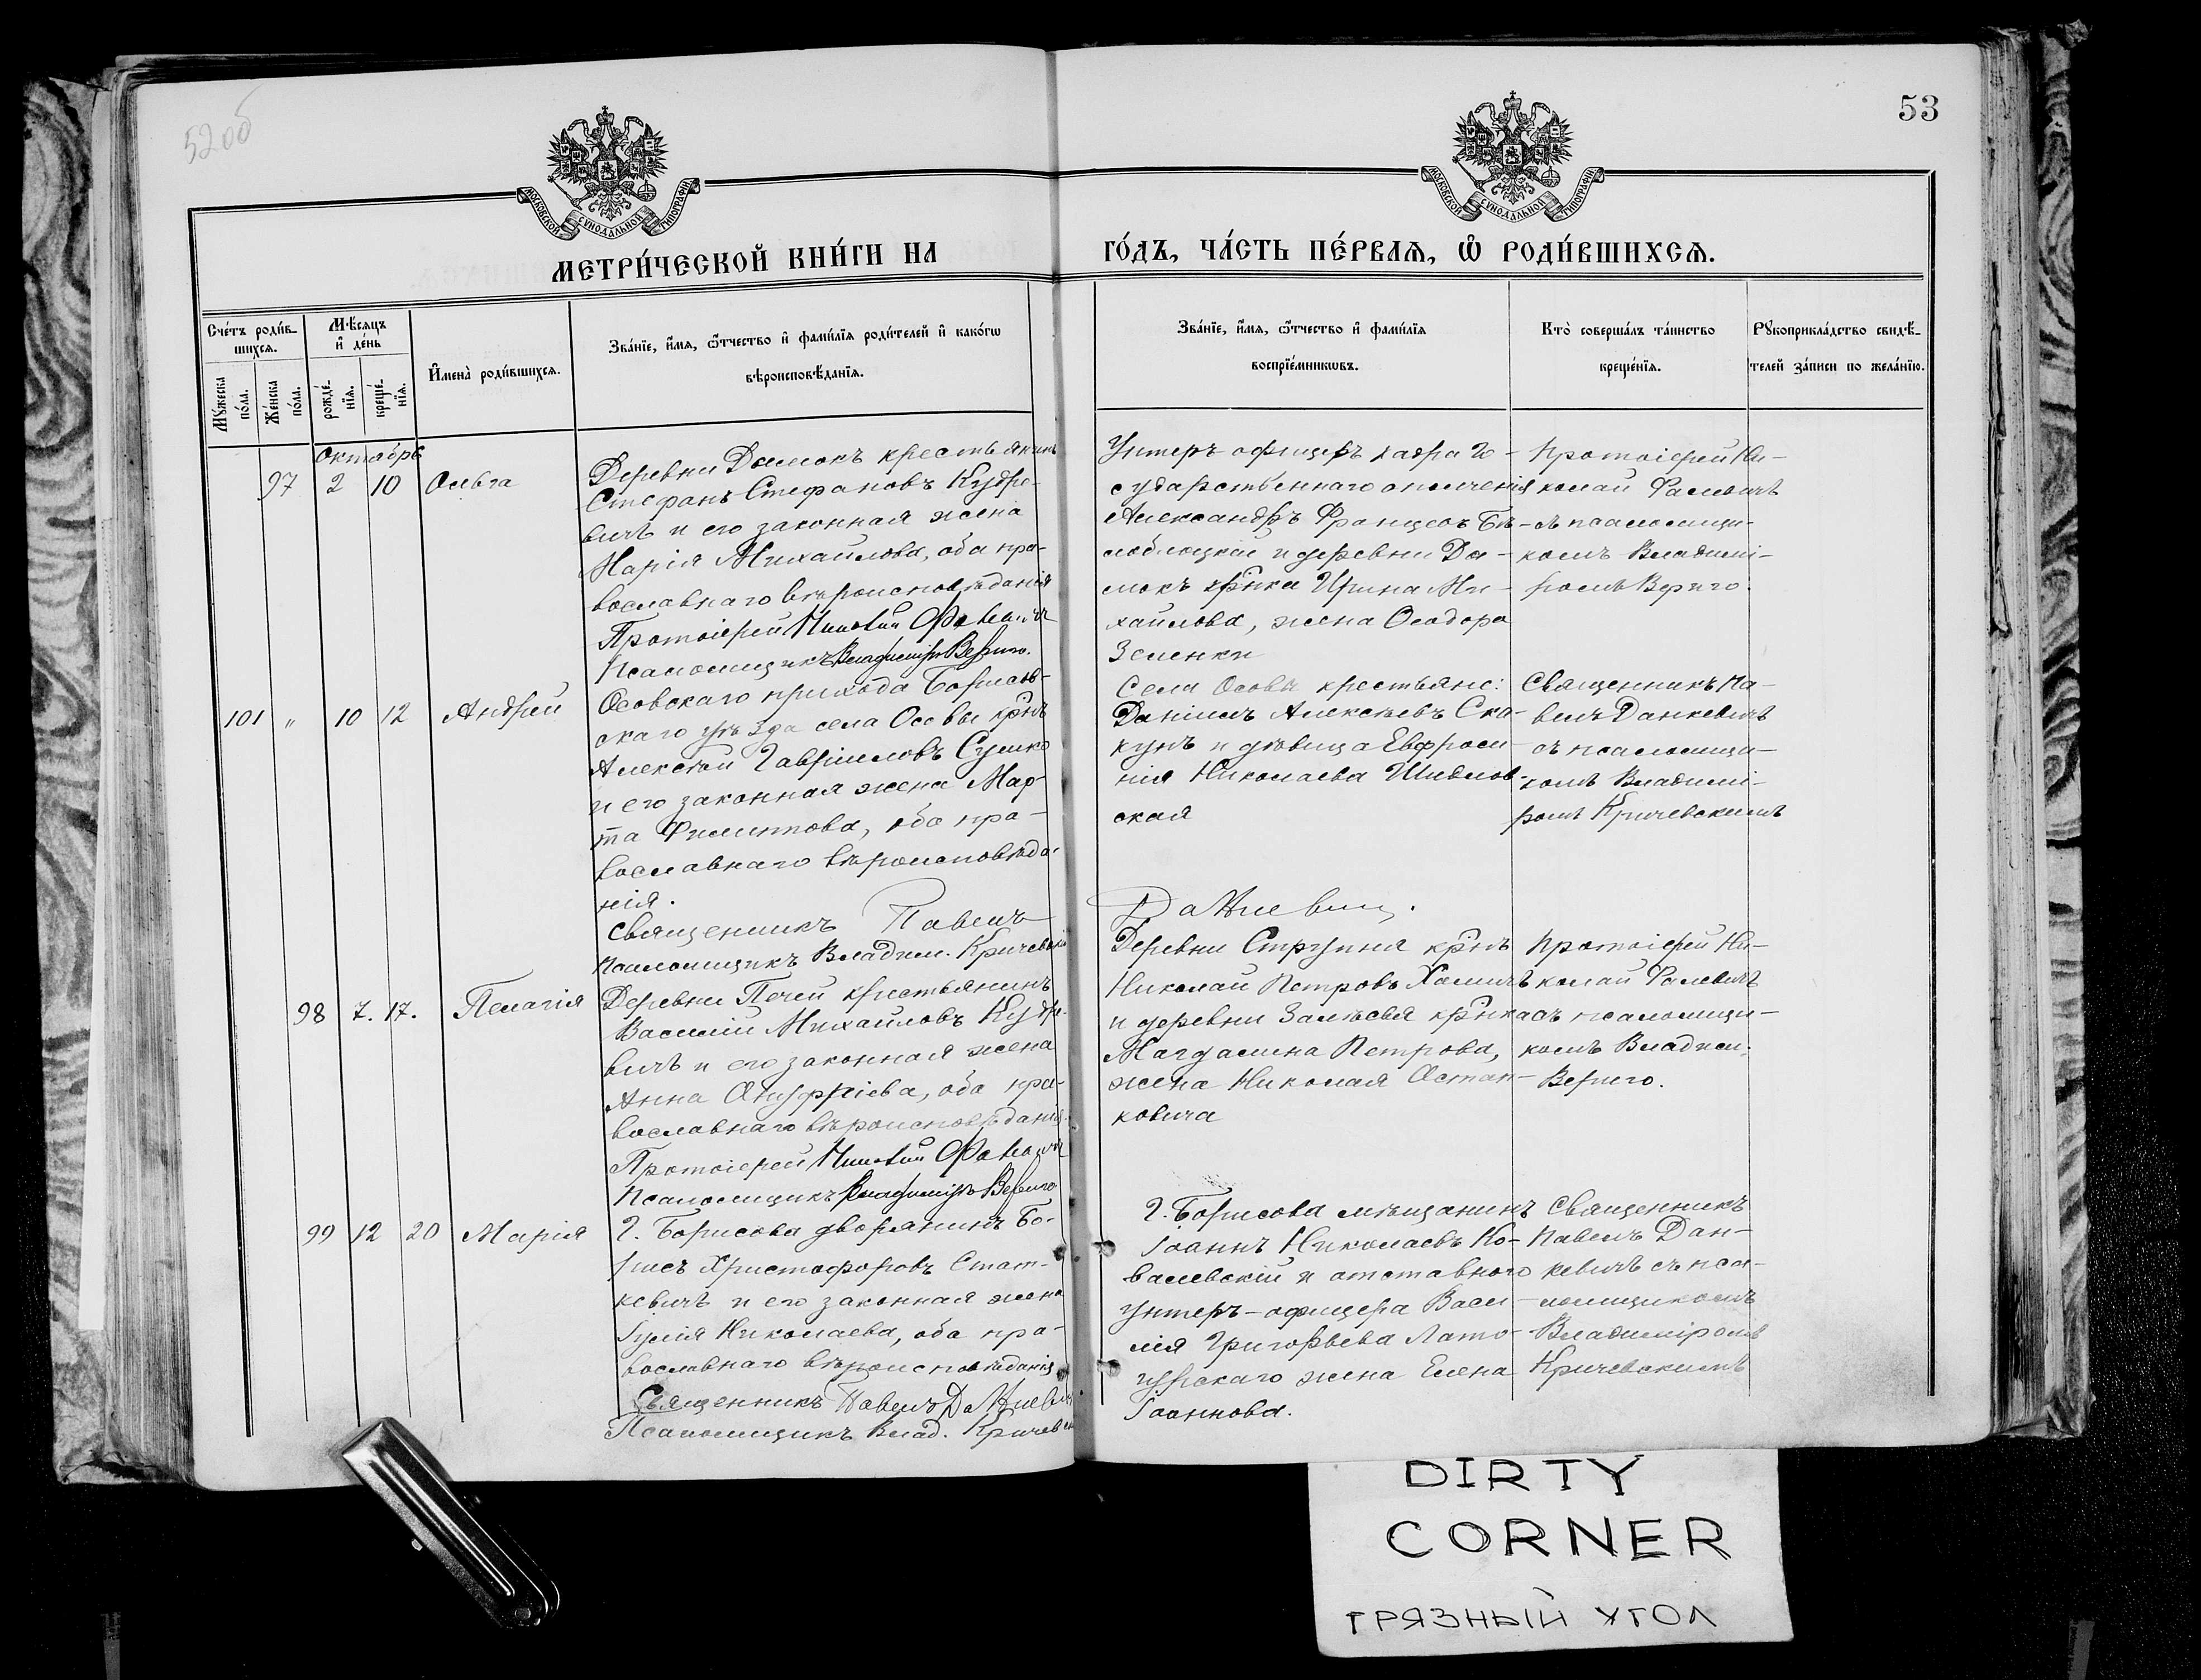 52об
53
МОСКОВСКОЙ СѴНОДАЛЬНОЙ ТИПОГРАФІИ
МОСКОВСКОЙ СѴНОДАЛЬНОЙ ТИПОГРАФІИ
МЕТРИ́ЧЕСКОЙ КНИ́ГИ НА ГО́ДЪ, ЧА́СТЬ ПЕ́РВАѦ, Ѡ҆ РОДИ́ВШИХСѦ.
Сче́тъ роди́в-
шихсѧ.
Мꙋ́жеска по́ла.
Же́нска по́ла.
Мѣ́сѧцъ и҆ де́нь
рожде́-нїѧ.
креще́-нїѧ.
И҆мена̀ роди́вшихсѧ.
Зва́нїе, и҆́мѧ, ѻ҆́тчество и҆ фами́лїѧ роди́телей и҆ како́гѡ
вѣроисповѣ́данїѧ.
Зва́нїе, и҆́мѧ, ѻ҆́тчество и҆ фами́лїѧ
воспрїе́мникѡвъ.
Кто̀ соверша́лъ та́инство
креще́нїѧ.
Рꙋкоприкла́дство свидѣ́-
телей за́писи по жела́нїю.
Октябрь
97 2 10 Ольга
Деревни Дымокъ крестьянинъ
Стефанъ Стефановъ Кудре-
вичъ и его законная жена
Марія Михайлова, оба пра-
вославнаго вѣроисповѣданія
Протоіерей Николай Фалевичъ
Псаломщикъ Владиміръ Вериго.
Унтеръ офицеръ кадра Го-
сударственнаго ополченія
Александръ Францовъ Бѣ-
лоблоцкій и деревни Ды-
мокъ кр-нка Ирина Ми-
хайлова, жена Ѳеодора
Зеленки
Протоіерей Ни-
колай Фалевичъ
съ псаломщи-
комъ Владимі-
ромъ Вериго.
101 " 10 12 Андрей
Осовскаго прихода Борисов-
скаго уѣзда села Осовы кр-нъ
Алексѣй Гавріиловъ Сушко
и его законная жена Мар-
та Филиппова, оба пра-
вославнаго вѣроисповѣда-
нія.
Священникъ Павелъ Данкевичъ.
Псаломщикъ Владим. Кричевскій
Села Осовы крестьяне:
Даніилъ Алексѣевъ Ска-
кунъ и дѣвица Евфроси-
нія Николаева Шидлов-
ская
Священникъ Па-
велъ Данкевичъ
съ псаломщи-
комъ Владимі-
ромъ Кричевскимъ
98 7. 17. Пелагія
Деревни Печей крестьянинъ
Василій Михайловъ Кудре-
вичъ и его законная жена
Анна Онуфріева, оба пра-
вославнаго вѣроисповѣданія.
Протоіерей Николай Фалевичъ
Псаломщикъ Владиміръ Вериго
Деревни Струпня кр-нъ
Николай Петровъ Хамичъ
и деревни Залѣсья кр-нка
Магдалина Петрова,
жена Николая Остап-
ковича
Протоіерей Ни-
колай Фалевичъ
съ псаломщи-
комъ Владим.
Вериго.
99 12 20 Марія
Г. Борисова дворянинъ Бо-
рисъ Христофоровъ Стат-
кевичъ и его законная жена
Іулія Николаева, оба пра-
вославнаго вѣроисповѣданія
Священникъ Павелъ Данкевичъ
Псаломщикъ Влад. Кричевскій
Г. Борисова мѣщанинъ
Іоаннъ Николаевъ Ко-
валевскій и отставного
унтеръ-офицера Васи-
лія Григорьева Лато-
гурскаго жена Елена
Іоаннова.
Священникъ
Павелъ Дан-
кевичъ съ пса-
ломщикомъ
Владиміромъ
Кричевскимъ
DIRTY
CORNER
ГРЯЗНЫЙ УГОЛ